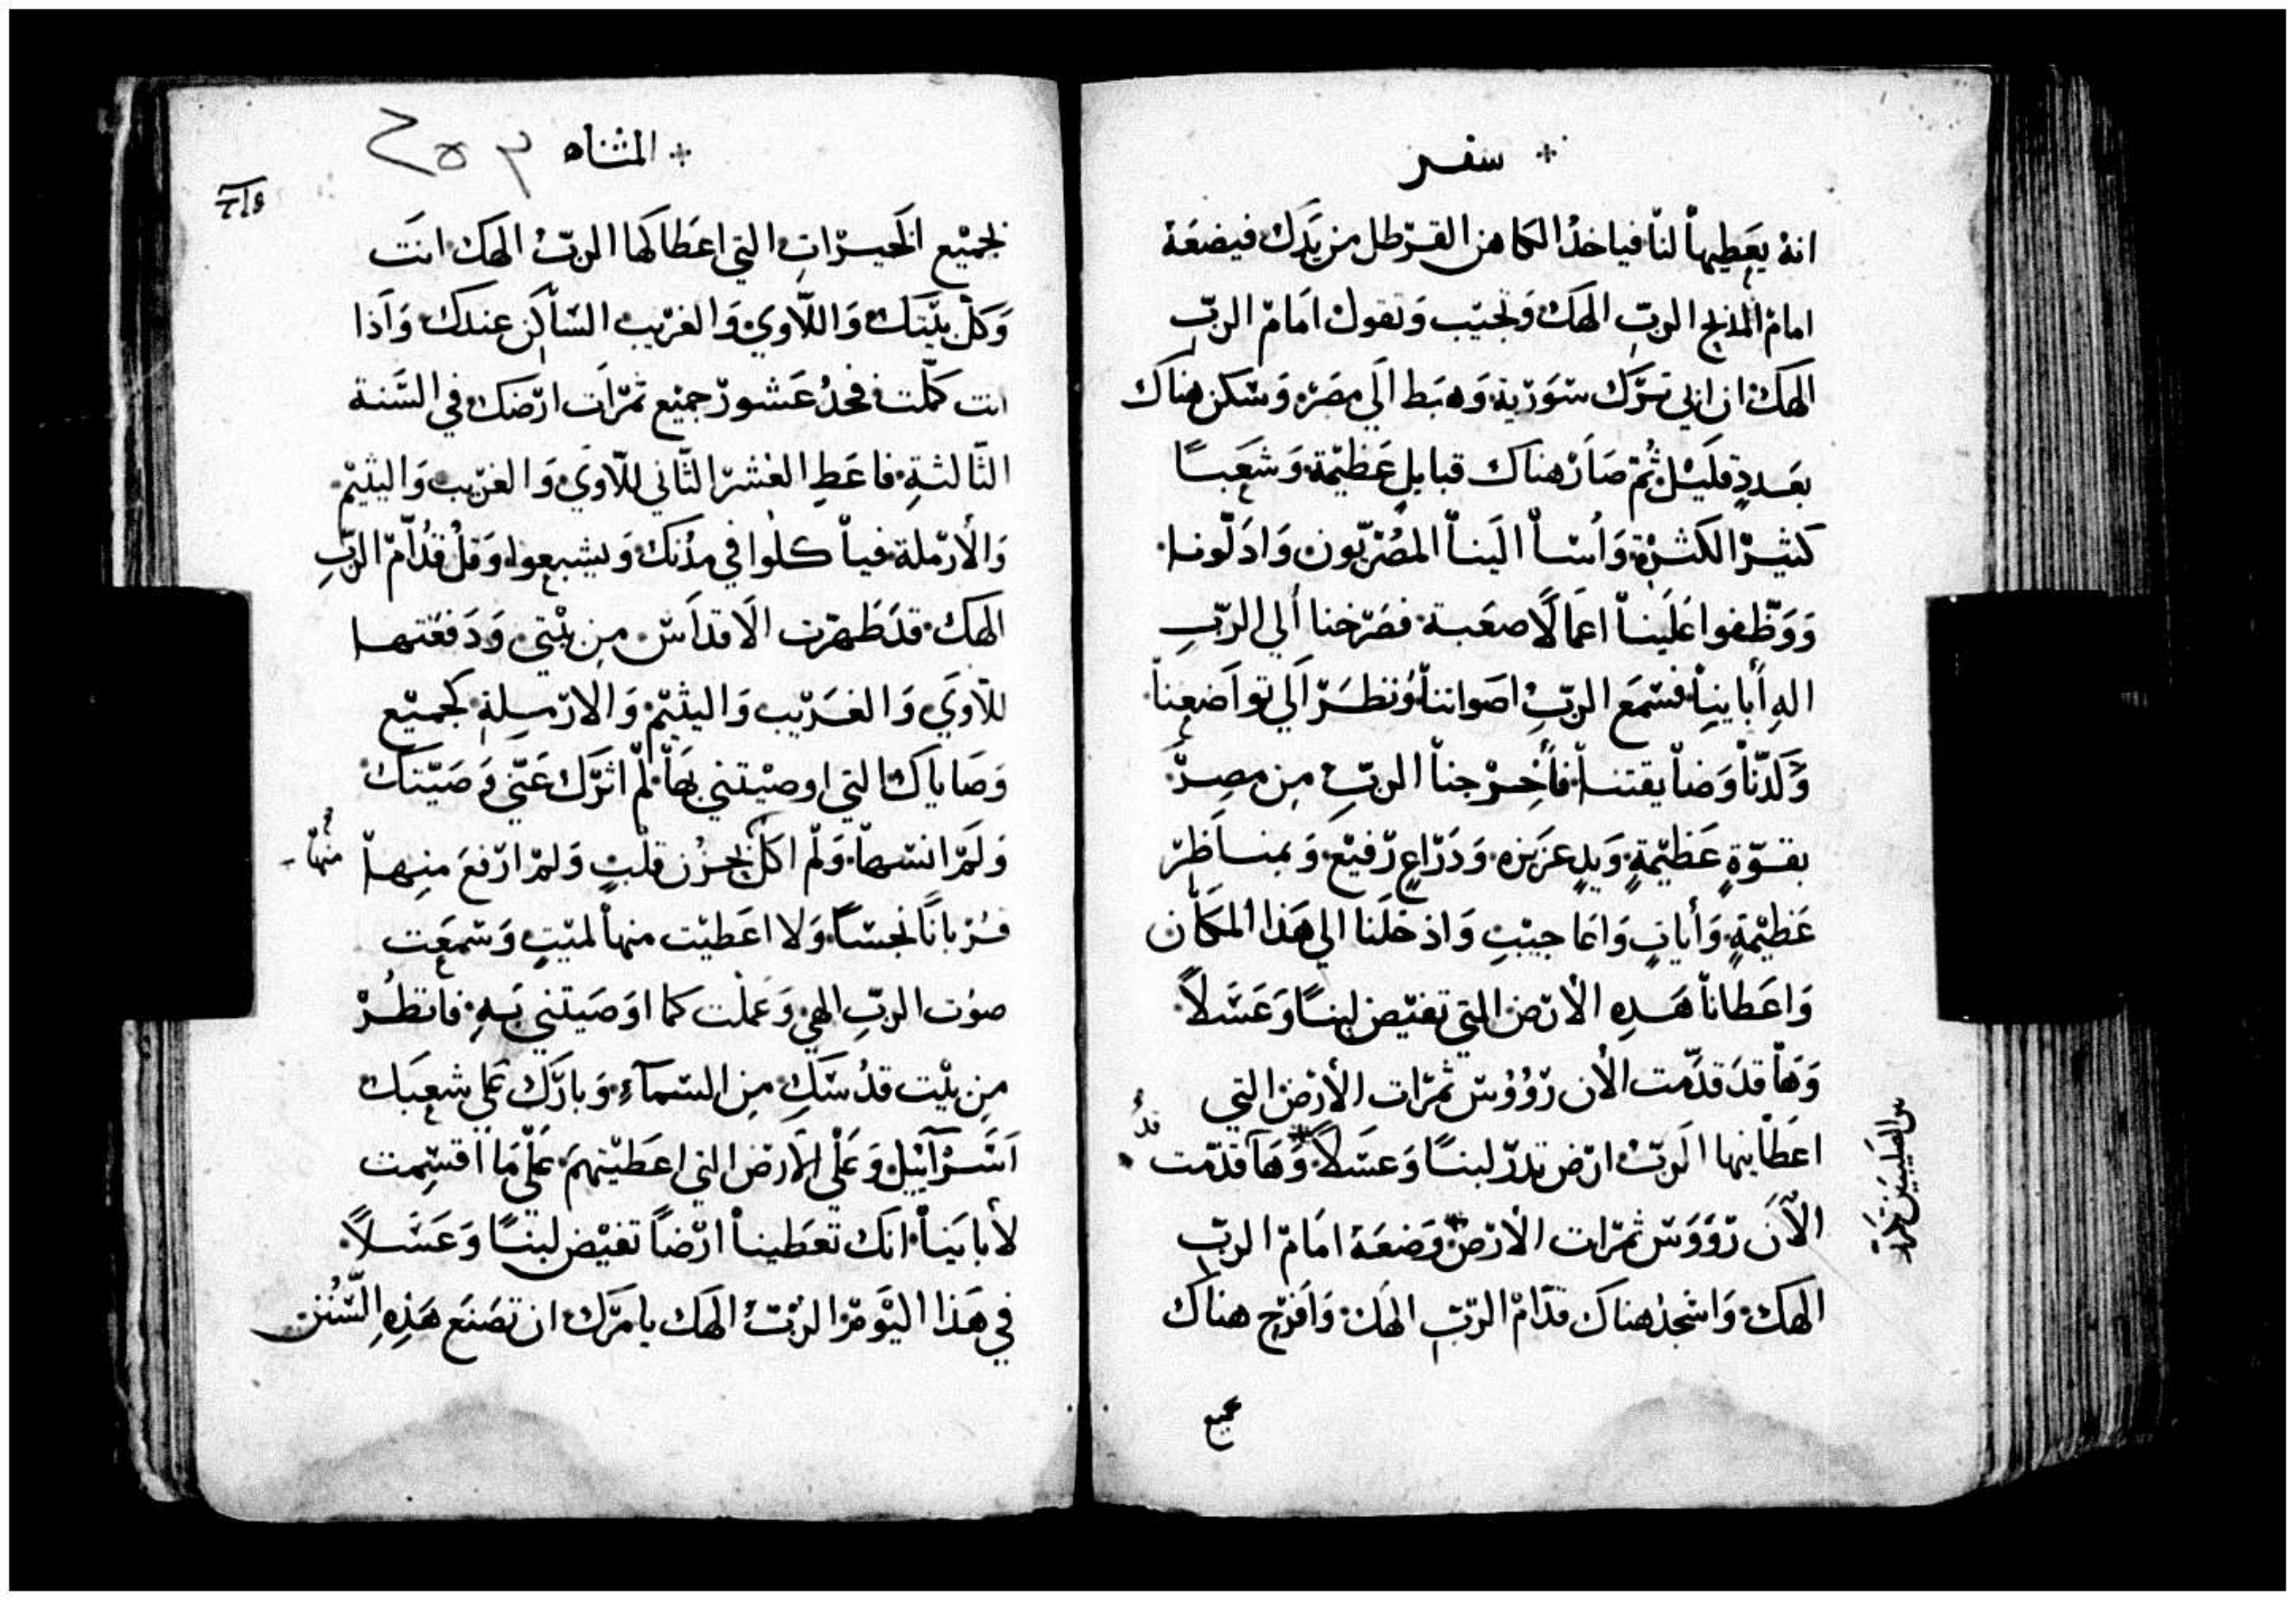 سفر
انه يعطيها لنا فياخذ الكاهن القرطل من يدك فيضعه
امام المذبح الرب الهك وتجيب وتقول امام الرب
الهك ان ابي ترك سورية وهبط الي مصر وسكن هناك
بعدد قليل ثم صار هناك قبايل عظيمة وشعبا
كثير الكثرة واسا الينا المصريون واذلونا
ووظفوا علينا اعمالا صعبة فصرخنا الي الرب
اله أباينا فسمع الرب اصواتنا ونظر الي تواضعنا
وكدنا وضايقتنا فأخرجنا الرب من مصر
بقوة عظيمة ويد عزيزه وذراع رفيع وبمناظر
عظيمة وأيات واعاجيب واذخلنا الي هذا المكان
واعطانا هذه الارض التي تفيض لبنا وعسلا
وها قد قدمت الان رؤوس ثمرات الأرض التي
اعطانيها الرب ارض تدر لبنا وعسلا وها قدمت
الآن رؤوس ثمرات الارض وضعه امام الرب
الهك واسجد هناك قدام الرب الهك وافرح هناك
المثناه
لجميع الخيرات التي اعطاكها الرب الهك انت
وكل بيتك واللاوي والغريب الساكن عندك واذا
انت كملت فخذ عشور جميع ثمرات ارضك في السنة
الثالثة فاعط العشر الثاني للاوي والغريب واليتيم
والأرملة فياكلوا في مدنك ويشبعوا وقل قدام الرب
الهك قد ظهرت الاقداس من بيتي ودفعتها
للاوي والغريب واليتيم والارملة كجميع
وصاياك التي اوصيتني بها لم اترك عني وصيتك
ولم انسها ولم اكل بحزن قلب ولم ارفع منها
منها
قربانا نجسا ولا اعطيت منها لميت وسمعت
صوت الرب الهي وعملت كما اوصيتني به فانظر
من بيت قدسك من السماء وبارك علي شعبك
اسرآييل وعلي الارض التي اعطيتهم علي ما اقسمت
لأباينا انك تعطينا ارضا تفيض لبنا وعسلا
في هذا اليوم الرب الهك يامرك ان تصنع هذه السنن